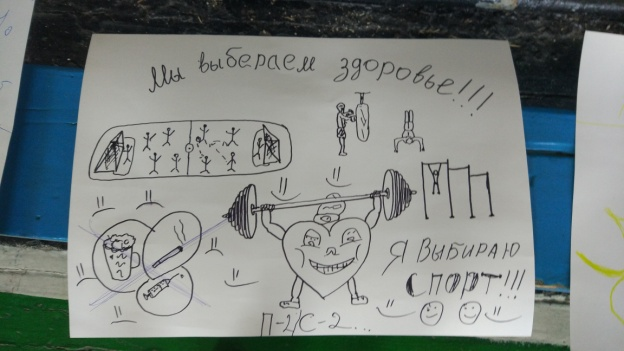 Мы выбераем здоровье!!!
Я ВЫБИРАЮ
СПОРТ!!!
П-2/С-2...